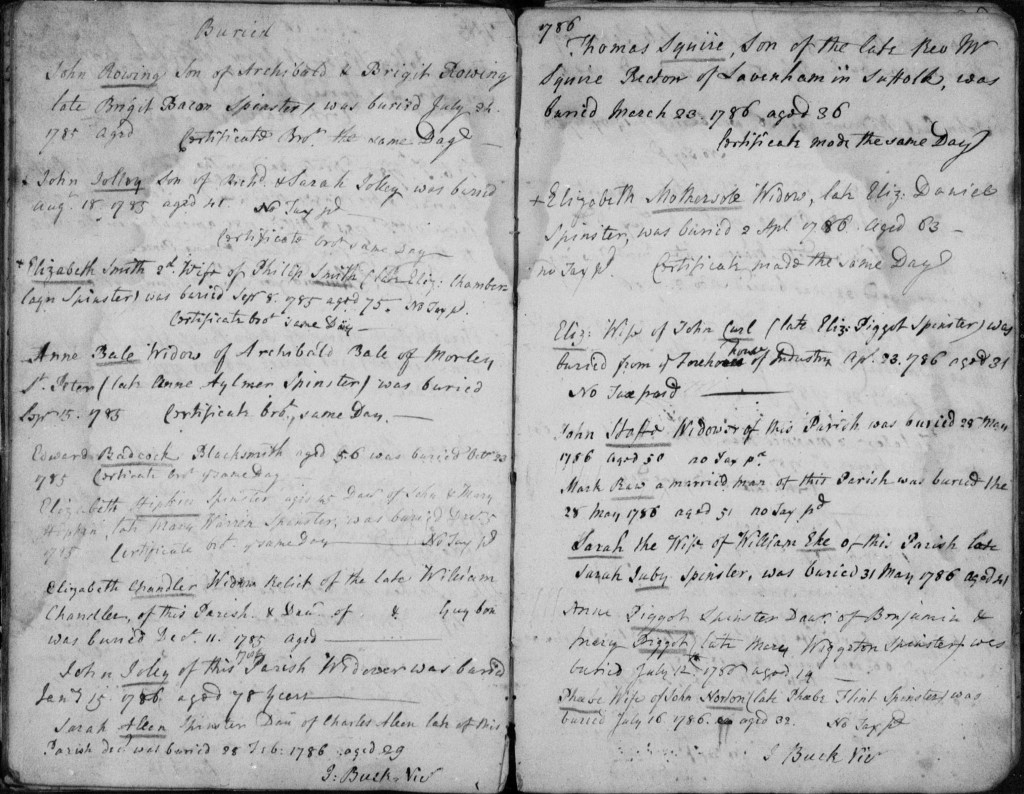 Buried
John Rowing Son of Archibald & Brigit Rowing
late Brigit Bacon Spinster, was buried July 24.
1785 aged Certificate Bro.t the same Day
John Jolley Son of Arch.d & Sarah Jolley was buried
Aug. 18. 1785 aged 41 No Tax p.d
Certificate bro.t same Day
+ Elizabeth Smith 2.d Wife of Philip Smith (late Eliz: Chamber
layn Spinster) was buried Sep.r 8. 1785 aged 75. No Tax p.d
Certificate bro.t same Day
Anne Bale Widow of Archibald Bale of Morley
St. Peter (late Anne Aylmer Spinster) was buried
Sep.r 15. 1785 Certificate bro.t same Day.
Edward Badcock Blacksmith aged 56 was buried Oct.r 23
1785 Certicate bro.t y same day
Elizabeth Hipkin Spinster aged 45 Dau.r of John & Mary
Hipkin, late Mary Warren Spinster, was buried Dec.r 5
1785 Certificate bro.t y same day No Tax p.d
Elizabeth Chandler Widow Relict of the late William
Chandler, of this Parish. & Dau.r of & Guybon
was buried Dec.r 11. 1785 aged
John Joley of this Parish Widower was buried
1786
Jan.y 15. 1786 aged 78 Years
Sarah Aleen Spinster Dau of Charles Aleen late of this
Parish dec.d was buried 28 Feb. 1786 aged 29
J: Buck Vic
1786
Thomas Squire, Son of the late Rev Mr
Squire Rector of Lavenham in Suffolk, was
buried March 23. 1786 aged 36
Certificate made the same Day
+ Elizabeth Mothersole Widow, late Eliz. Daniel
Spinster, was buried 2 Apl. 1786 aged 63
no Tax p.d Certificate made the same Day
Eliz: Wife of John Curl (late Eliz: Piggot Spinster) was
buried from y Forehoe house of Industry Ap.l 23. 1786 aged 31
No Tax paid
John Staff Widower of this Parish was buried 28 May
1786 aged 50 no Tax p.d
Mark Raw a married man of this Parish was buried the
28 May 1786 aged 51 no Tax p.d
Sarah the Wife of William Eke of this Parish late
Sarah Juby Spinster, was buried 31 May 1786 aged 41
Anne Piggot Spinster Dau.r of Benjamin &
Mary Piggot (late Mary Wiggston Spinster) was
buried July 12th 1786 aged 19
Phoebe Wife of John Norton (late Phoebe Flint Spinster) was
buried July 16 1786. aged 32. No Tax p.d
J Buck Vic